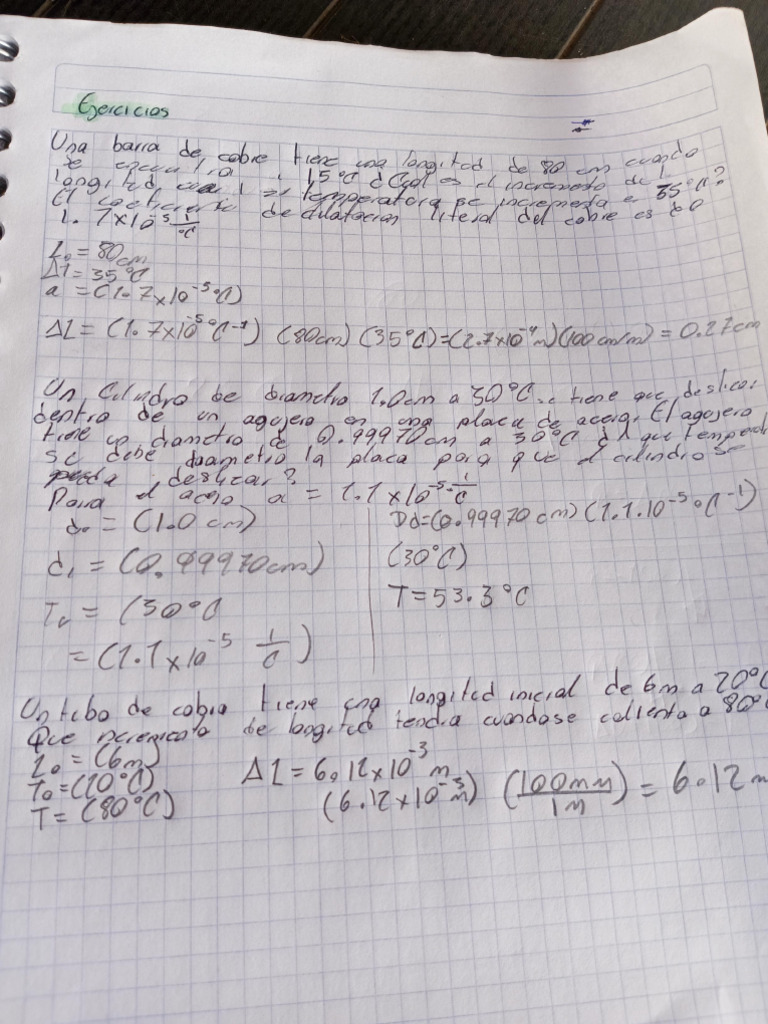 Ejercicios
Una barra de cobre tiene una longitud de 80 cm cuando
se encuentra 15°C ¿Cual es el incremento de l
longitud cuando temperatura se incrementa a 35°C?
El coeficiente de dilatacion literal del cobre es
1.7x10⁻⁵ 1/°C
L₀ = 80cm
Δ1 = 35°C
a = (1.7x10⁻⁵°C)
ΔL = (1.7x10⁻⁵°C⁻¹) (80cm) (35°C) = (2.7x10⁻⁴m)(100cm/m) = 0.27cm
Un Cilindro de diametro 1.0cm a 30°C se tiene que deslizar
dentro de un agujero en una placa de acero. El agujero
tiene un diametro de 0.99970cm a 30°C ¿A que temperat
se debe la placa para que el cilindro se
pueda deslizar?
Para el acero a = 1.1x10⁻⁵ 1/C
d₀ = (1.0 cm)
d₁ = (0.99970cm)
T₀ = (30°C
= (1.1x10⁻⁵ 1/C)
Dd=(0.99970 cm) (1.1.10⁻⁵°C⁻¹)
(30°C)
T = 53.3°C
Un tubo de cobre tiene una longitud inicial de 6m a 20°C
Que incremento de longitud tendra cuando se calienta a 80°
L₀ = (6m)
T₀ = (20°C)
T = (80°C)
ΔL = 6.12x10⁻³ m
(6.12x10⁻³m) (100mm/1m) = 6.12 m